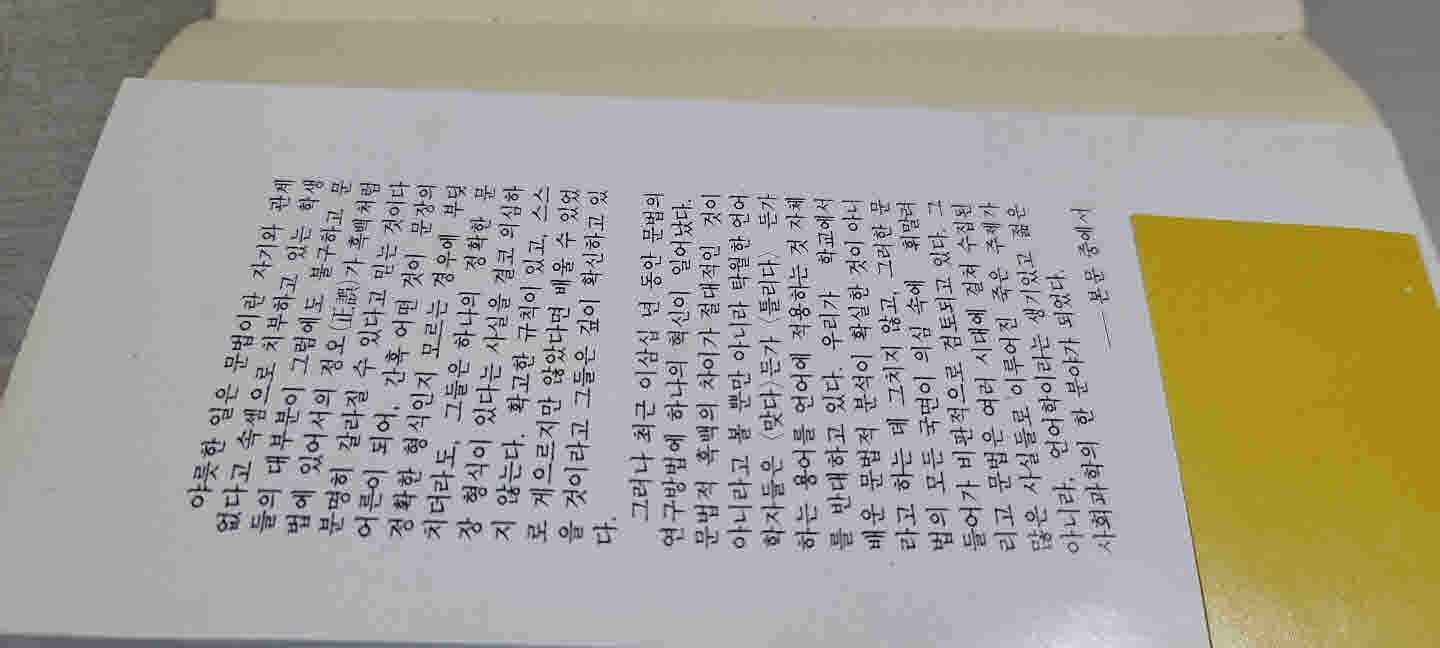 야릇한 일은 문법이란 자기와 관계
없다고 속셈으로 치부하고 있는 학생
들의 대부분이 그럼에도 불구하고 문
법에 있어서의 정오(正誤)가 흑백처럼
분명히 갈라질 수 있다고 믿는 것이다
어른이 되어, 간혹 어떤 것이 문장의
정확한 형식인지 모르는 경우에 부딪
치더라도, 그들은 하나의 정확한 문
장 형식이 있다는 사실을 결코 의심하
지 않는다. 확고한 규칙이 있고, 스스
로 게으르지만 않았다면 배울 수 있었
을 것이라고 그들은 깊이 확신하고 있
다.
그러나 최근 이삼십 년 동안 문법의
연구방법에 하나의 혁신이 일어났다.
문법적 흑백의 차이가 절대적인 것이
아니라고 볼 뿐만 아니라 탁월한 언어
학자들은 〈맞다〉든가 〈틀리다〉든가
하는 용어를 언어에 적용하는 것 자체
를 반대하고 있다. 우리가 학교에서
배운 문법적 분석이 확실한 것이 아니
라고 하는 데 그치지 않고, 그러한 문
법의 모든 국면이 의심 속에 휘말려
들어가 비판적으로 검토되고 있다. 그
리고 문법은 여러 시대에 걸쳐 수집된
많은 사실들로 이루어진 죽은 주제가
아니라, 언어학이라는 생기있고 젊은
사회과학의 한 분야가 되었다.
── 본문 중에서